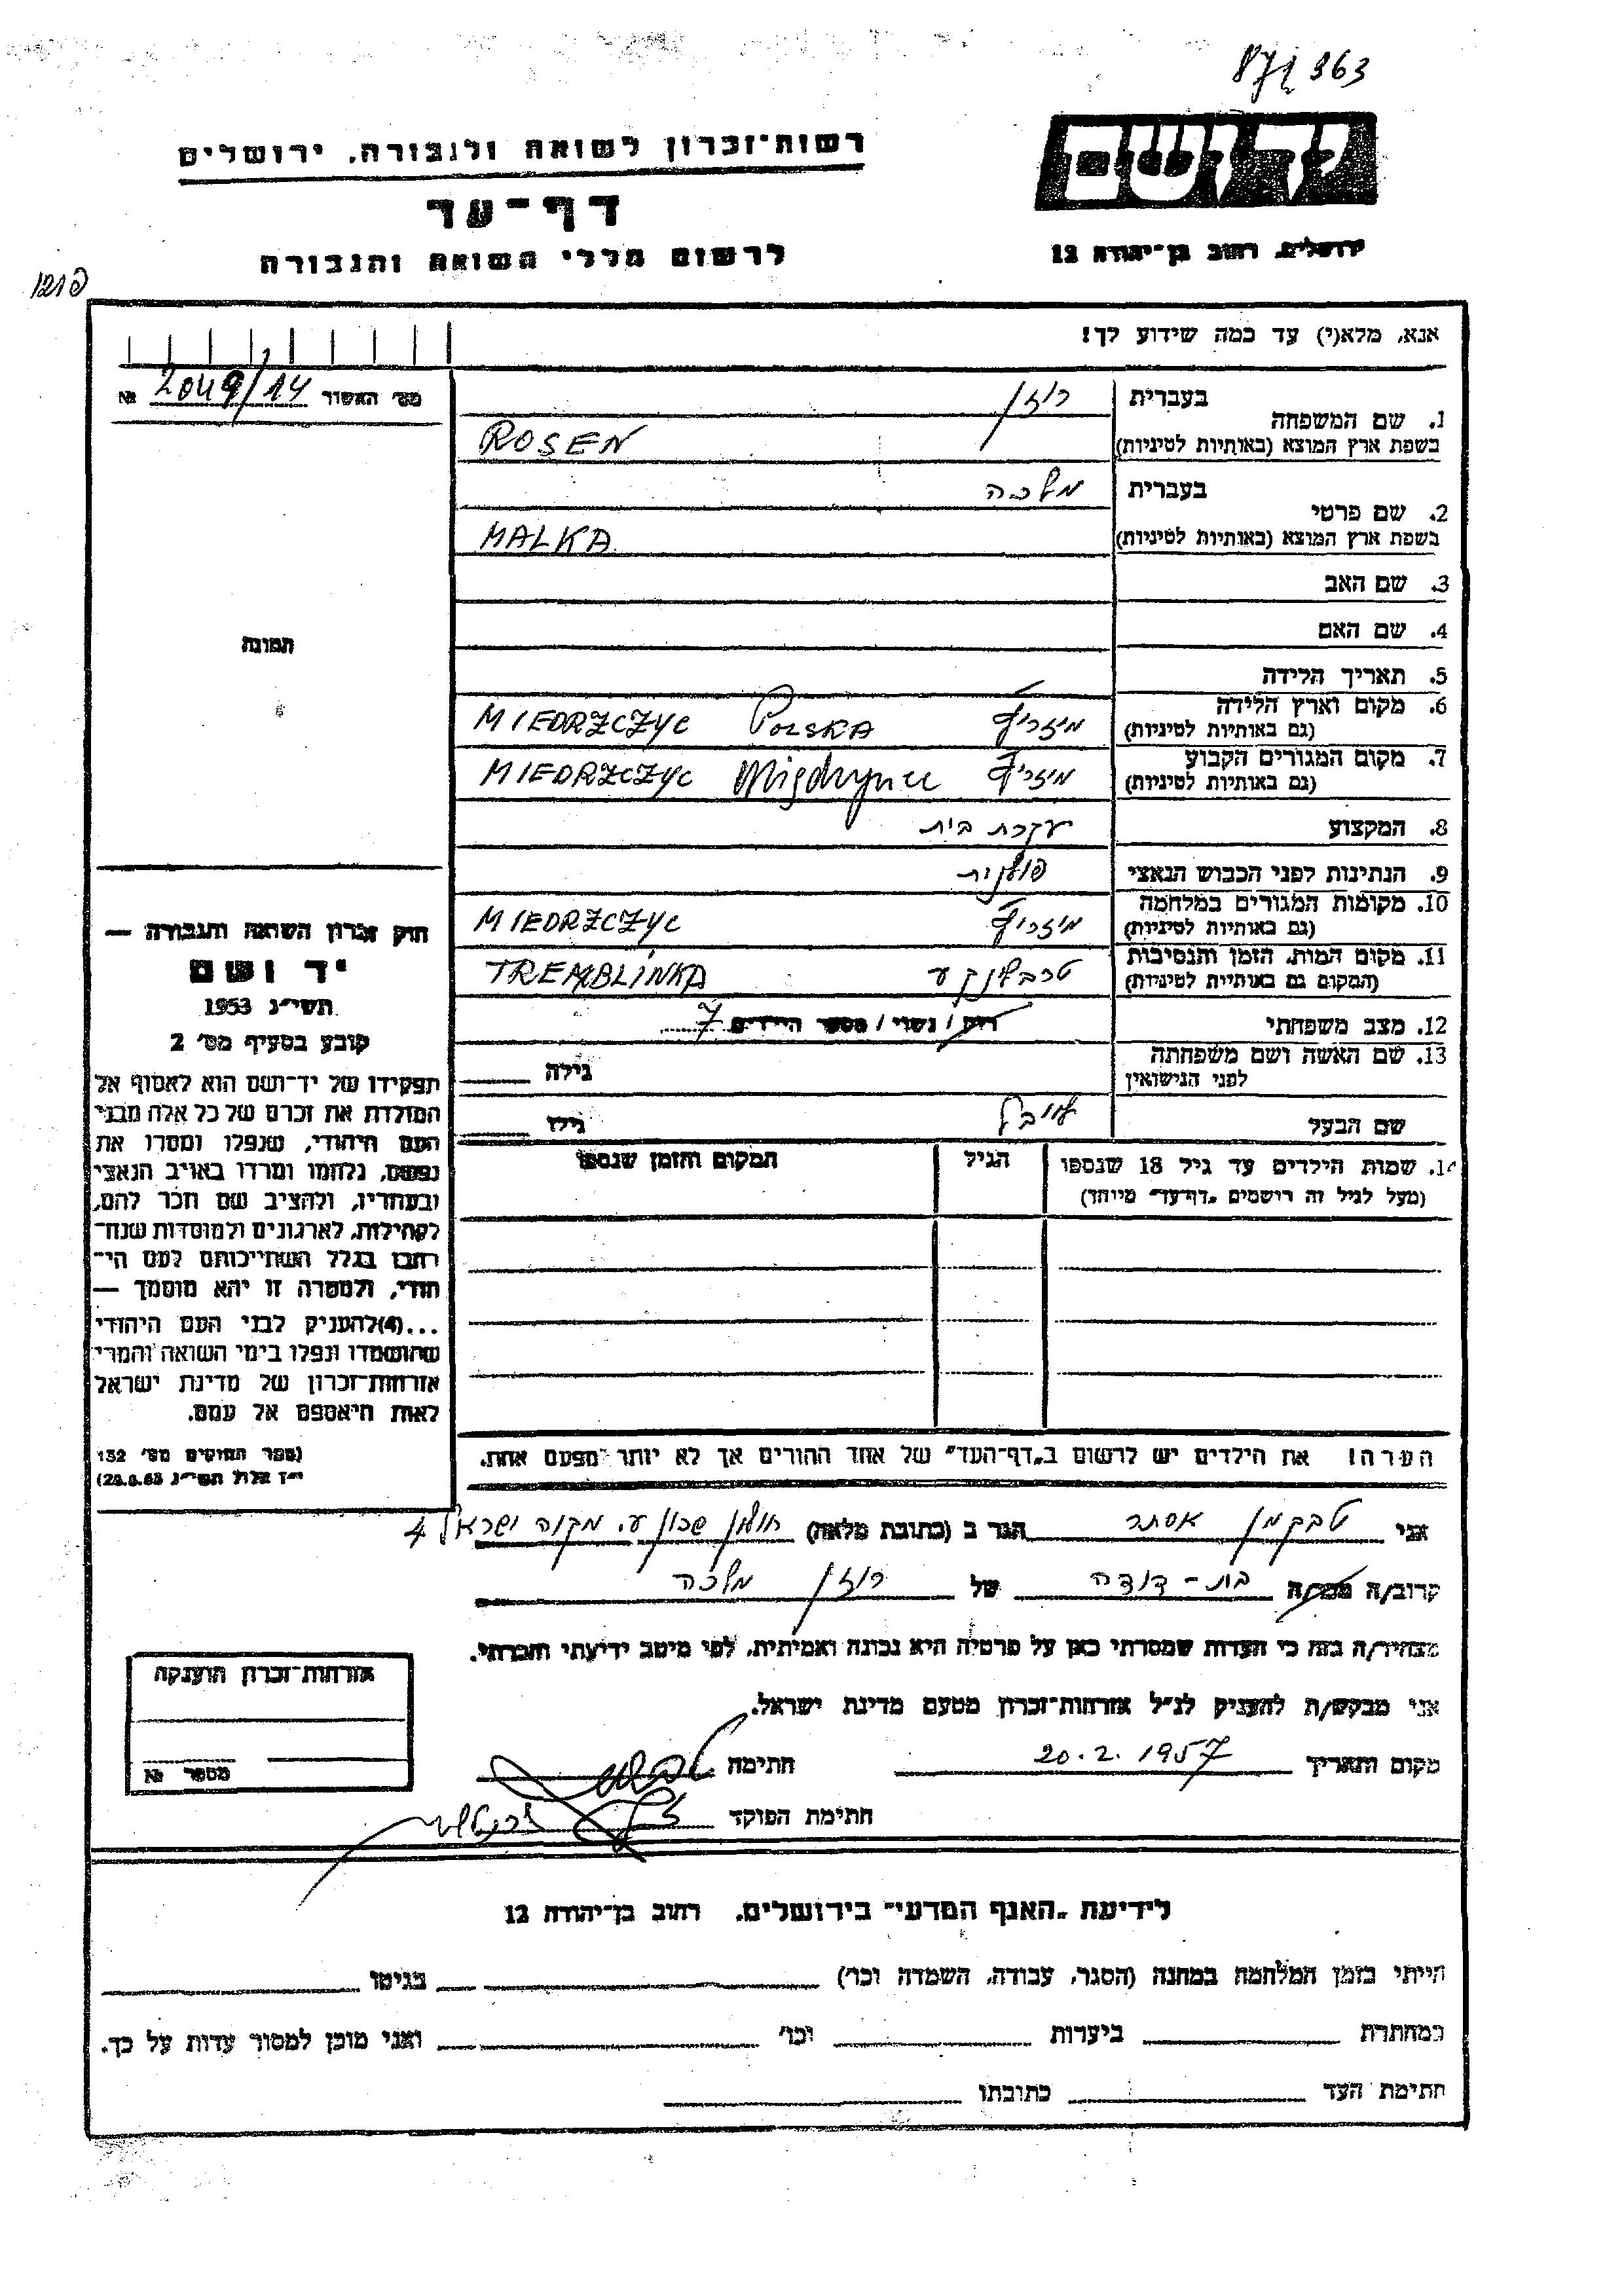 363
רשות־זכרון לשואה ולגבורה, ירושלים
יד ושם
דף־עד
ירושלים, רחוב בן־יהודה 12
לרשום חללי השואה והגבורה
אנא, מלא(י) עד כמה שידוע לך!
מס׳ האשור 2049/14 №
בעברית רוזן
1. שם המשפחה
בשפת ארץ המוצא (באותיות לטיניות) ROSEN
בעברית מלכה
2. שם פרטי
בשפת ארץ המוצא (באותיות לטיניות) MALKA
3. שם האב
4. שם האם
תמונה
5. תאריך הלידה
6. מקום וארץ הלידה
(גם באותיות לטיניות) מיזריץ POLSKA MIEDRZCZYC
7. מקום המגורים הקבוע
(גם באותיות לטיניות) מיזריץ MIEDRZCZYC
8. המקצוע עקרת בית
9. הנתינות לפני הכבוש הנאצי פולנית
10. מקומות המגורים במלחמה
(גם באותיות לטיניות) מיזריץ MIEDRZCZYC
11. מקום המות, הזמן והנסיבות
(המקום גם באותיות לטיניות) טרבלינקע TREMBLINKA
12. מצב משפחתי רוק / נשוי / מספר הילדים 7
13. שם האשה ושם משפחתה
לפני הנישואין
גילה
שם הבעל לייבל
גילו
14. שמות הילדים עד גיל 18 שנספו
(מעל לגיל זה רושמים „דף־עד״ מיוחד)
הגיל
המקום והזמן שנספו
חוק זכרון השואה והגבורה —
יד ושם
תשי״ג 1953
קובע בסעיף מס׳ 2
תפקידו של יד־ושם הוא לאסוף אל
המולדת את זכרם של כל אלה מבני
העם היהודי, שנפלו ומסרו את
נפשם, נלחמו ומרדו באויב הנאצי
ובעוזריו, ולהציב שם וזכר להם,
לקהילות, לארגונים ולמוסדות שנח־
רבו בגלל השתייכותם לעם הי־
הודי, ולמטרה זו יהא מוסמך —
...(4)להעניק לבני העם היהודי
שהושמדו ונפלו בימי השואה והמרי
אזרחות־זכרון של מדינת ישראל
לאות היאספם אל עמם.
(ספר החוקים מס׳ 132
י״ז אלול תשי״ג 28.8.53)
הערה! את הילדים יש לרשום ב„דף־העד״ של אחד ההורים אך לא יותר מפעם אחת.
אני טבקמן אסתר הגר ב (כתובת מלאה) חולון שכון ע. מקוה ישראל 4
קרוב/ה מכר/ה בת-דודה של רוזן מלכה
מצהיר/ה בזה כי העדות שמסרתי כאן על פרטיה היא נכונה ואמיתית, לפי מיטב ידיעתי והכרתי.
אני מבקש/ת להעניק לנ״ל אזרחות־זכרון מטעם מדינת ישראל.
מקום ותאריך 20.2.1957 חתימה
חתימת הפוקד
אזרחות־זכרון הוענקה
מספר №
לידיעת „האגף המדעי״ בירושלים, רחוב בן־יהודה 12
הייתי בזמן המלחמה במחנה (הסגר, עבודה, השמדה וכו׳) בגיטו
במחתרת ביערות וכו׳ ואני מוכן למסור עדות על כך.
חתימת העד כתובתו